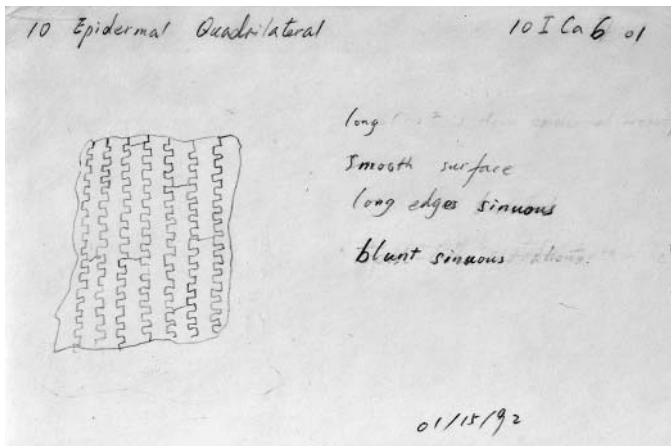 10 Epidermal Quadrilateral
10 I Ca 6 01
long
smooth surface
long edges sinuous
blunt sinuous
01/15/92